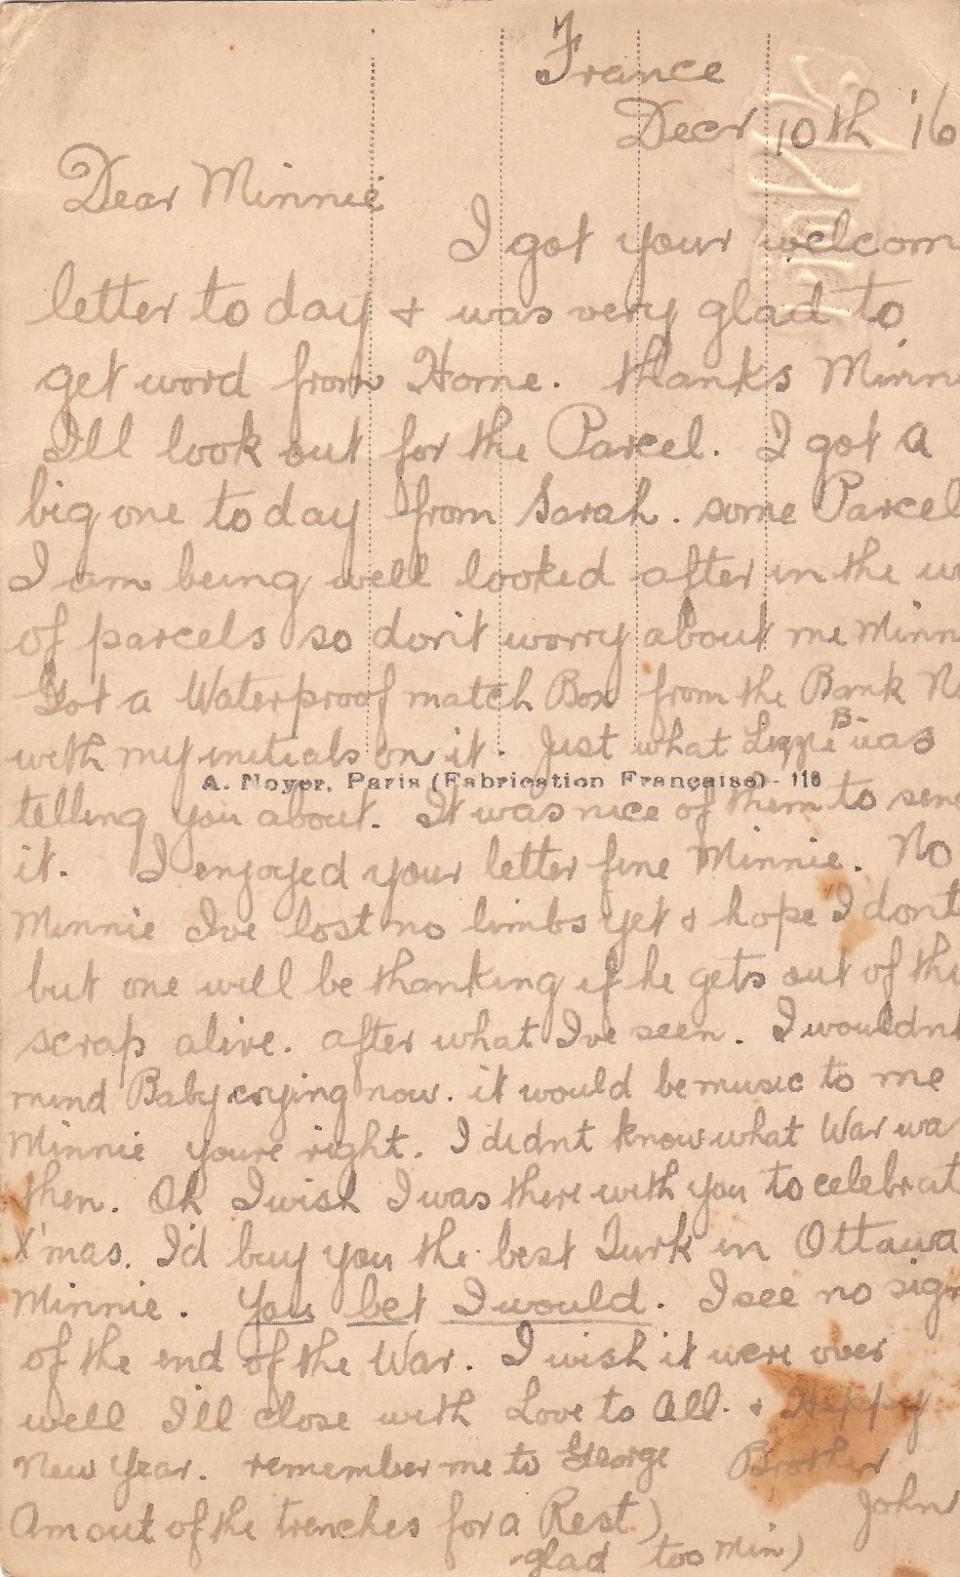 France
Decr 10th '16
Dear Minnie
I got your welcom
letter to day & was very glad to
get word from Home. thanks Minn
I'll look out for the Parcel. I got a
big one to day from Sarah. some Parcel
I am being well looked after in the w
of parcels so don't worry about me Minn
Got a Waterproof match Box from the Bank N
B-
with my initials on it. Just what Lizzie was
A. Noyer, Paris (Fabrication Française) - 118
telling you about. It was nice of them to sen
it. I enjoyed your letter fine Minnie. No
Minnie Ive lost no limbs yet & hope I dont
but one will be thanking if he gets out of thi
scrap alive. after what I've seen. I wouldnt
mind Baby crying now. it would be music to me
Minnie youre right. I didnt know what War wa
then. Oh I wish I was there with you to celebrat
X'mas. I'd buy you the best Turk in Ottawa
Minnie. You bet I would. I see no sign
of the end of the War. I wish it were over
well I'll close with Love to All. & Happy
New Year. remember me to George Brother
John
Am out of the trenches for a Rest)
glad too Min)